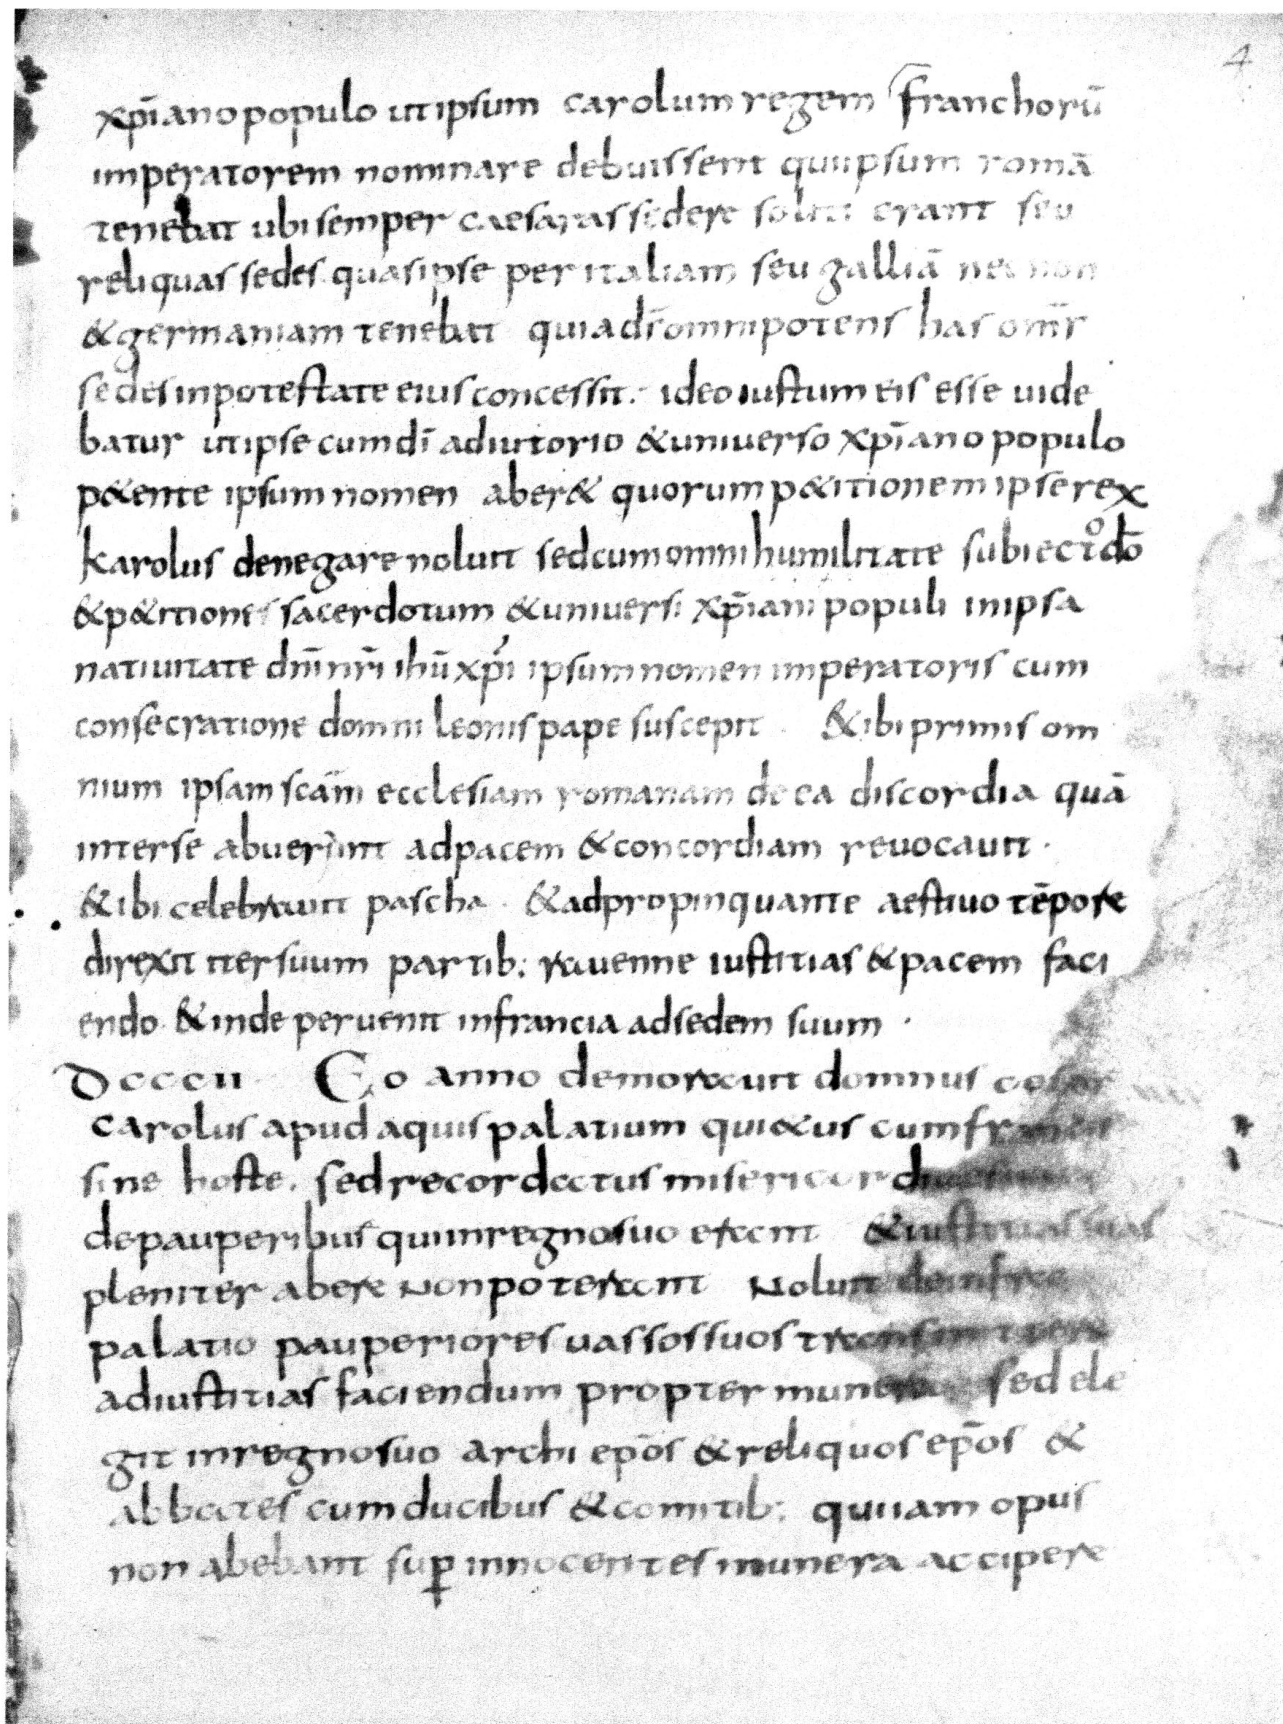 4
xp̄iano populo ut ipsum carolum regem franchorū
imperatorem nominare debuissent qui ipsum romā
tenebat ubi semper caesaras sedere soliti erant seu
reliquas sedes quas ipse per italiam seu galliā nec non
& germaniam tenebat quia dr̄ omnipotens has om̄s
sedes in potestate eius concessit· ideo iustum eis esse uide
batur ut ipse cum dī adiutorio & uniuerso xp̄iano populo
p&ente ipsum nomen aber& quorum p&itionem ipse rex
karolus denegare noluit sed cum omni humilitate subiectº dō
& p&itiones sacerdotum & uniuersi xp̄iani populi in ipsa
natiuitate dnī nrī ihū xp̄i ipsum nomen imperatoris cum
consecratione domni leonis pape suscepit · & ibi primis om
nium ipsam scām ecclesiam romanam de ea discordia quā
inter se abuerunt ad pacem & concordiam reuocauit ·
& ibi celebrauit pascha · & adpropinquante aestiuo tēpore
direxit iter suum partib; rauenne iustitias & pacem faci
endo · & inde peruenit in francia ad sedem suum ·
Dcccii · Eo anno demorauit domnus cesar
carolus apud aquis palatium qui&us cum francis
sine hoste· sed recordatus misericordiae suae
de pauperibus qui in regno suo erant & iustitias suas
pleniter abere non poterant Noluit de infra
palatio pauperiores uassos suos transmittere
ad iustitias faciendum propter munera sed ele
git in regno suo archi ep̄os & reliquos ep̄os &
abbates cum ducibus & comitib; qui iam opus
non abebant sup̱ innocentes munera accipere